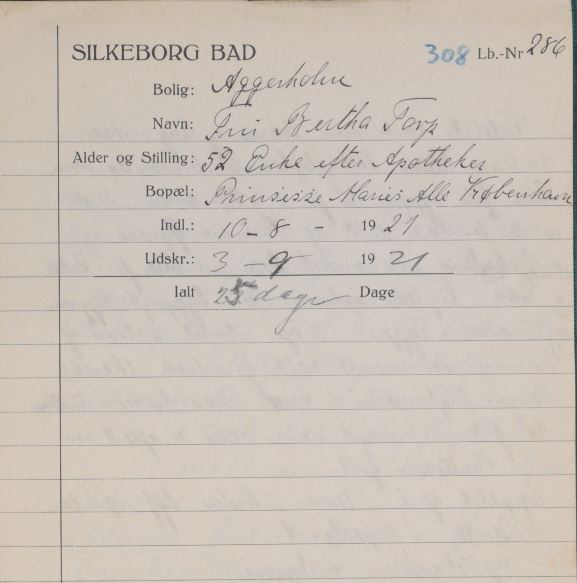 SILKEBORG BAD 308 Lb.-Nr 286
Bolig: Aggerholm
Navn: Fru Bertha Torp
Alder og Stilling: 52 Enke efter Apotheker
Bopæl: Prinsesse Maries Alle København
Indl.: 10-8 - 1921
Udskr.: 3-9 1921
Ialt 25 dage Dage